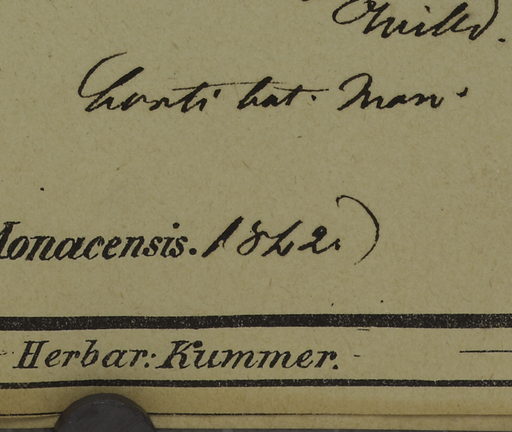 Willd.
horti bot. Mon.
Monacensis. 1842.)
Herbar: Kummer.